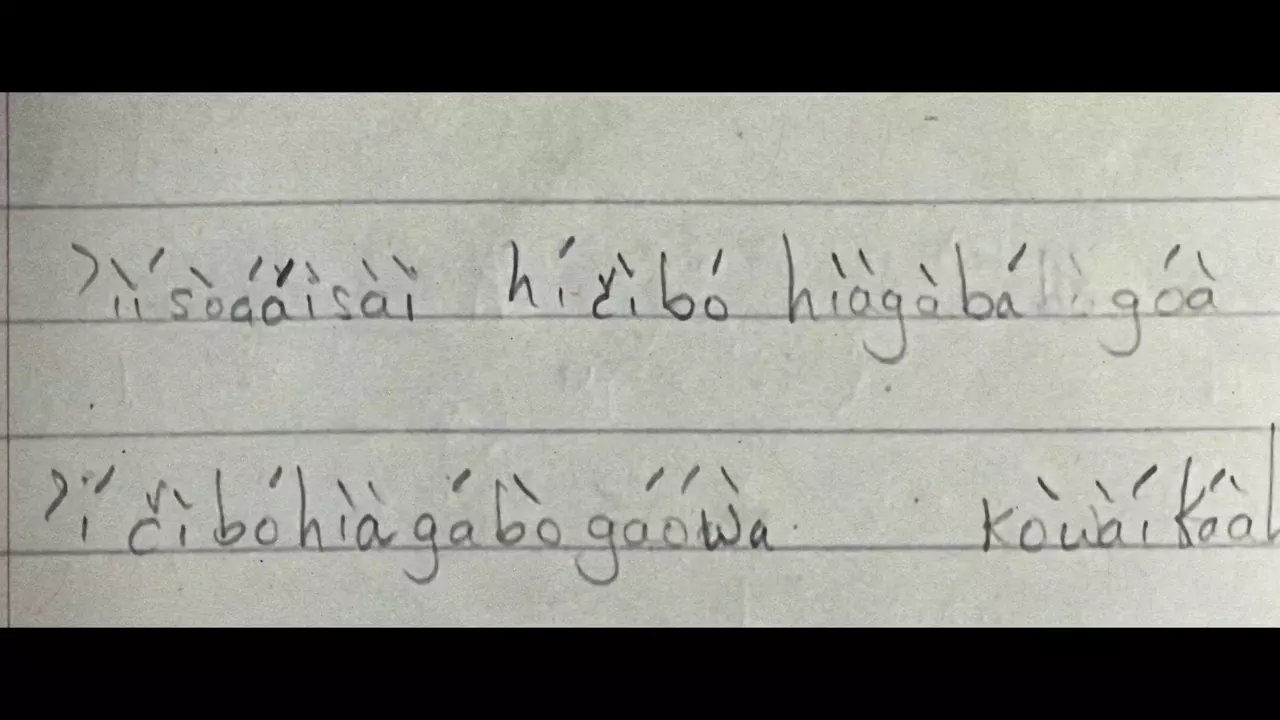 ʔìísòáá̌ìsàì hí čìbó hìàgàbá góà
ʔí čìbóhìàgábògáóówà. kòwàí káàl